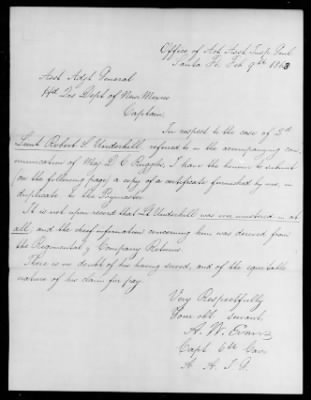 Office of Act Asst Insp Genl
Santa Fe Feb 9th 1863
Asst Adjt General
Hd Qrs Dept of New Mexico
Captain
In respect to the case of 2d
Lieut Robert S Underhill, referred to in the accompanying com-
munication of Maj D. C. Ruggles, I have the honor to submit
on the following page, a copy of a certificate furnished by me, in
duplicate to the Paymaster.
It is not upon record that Lt Underhill was ever mustered in at
all, and the chief information concerning him was derived from
the Regimental & Company Returns.
There is no doubt of his having served, and of the equitable
nature of his claim for pay.
Very Respectfully
Your obt servant,
A. W. Evans
Capt 6th Cav
A A I G.